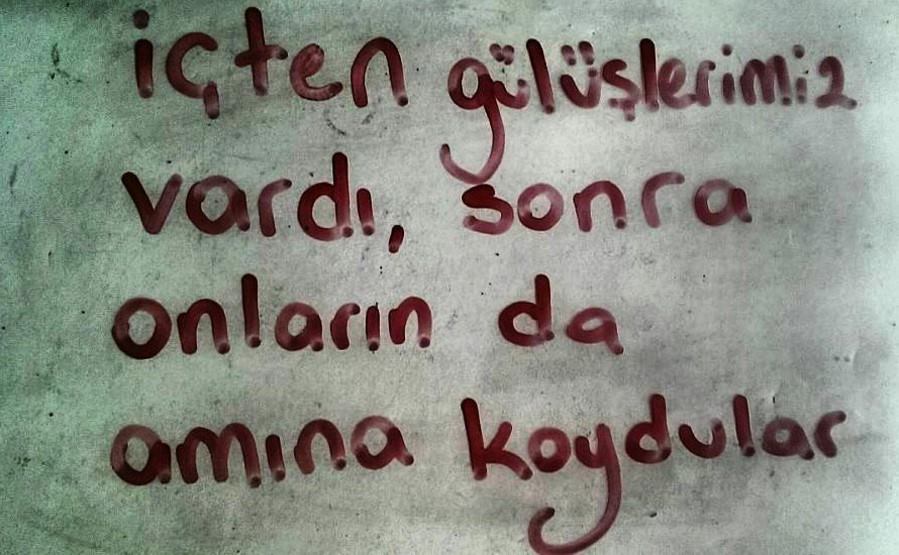 içten gülüşlerimiz
vardı, sonra
onların da
amına koydular